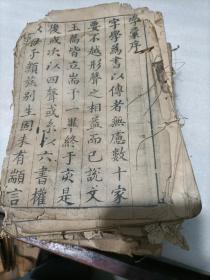 字彙序
字學爲書以傳者無慮數十家
要不越形聲之相益而已說文
玉篇皆立耑于一畢終于亥是
後或次以四聲或系以六書權
以母子類茲別生固未有顓言